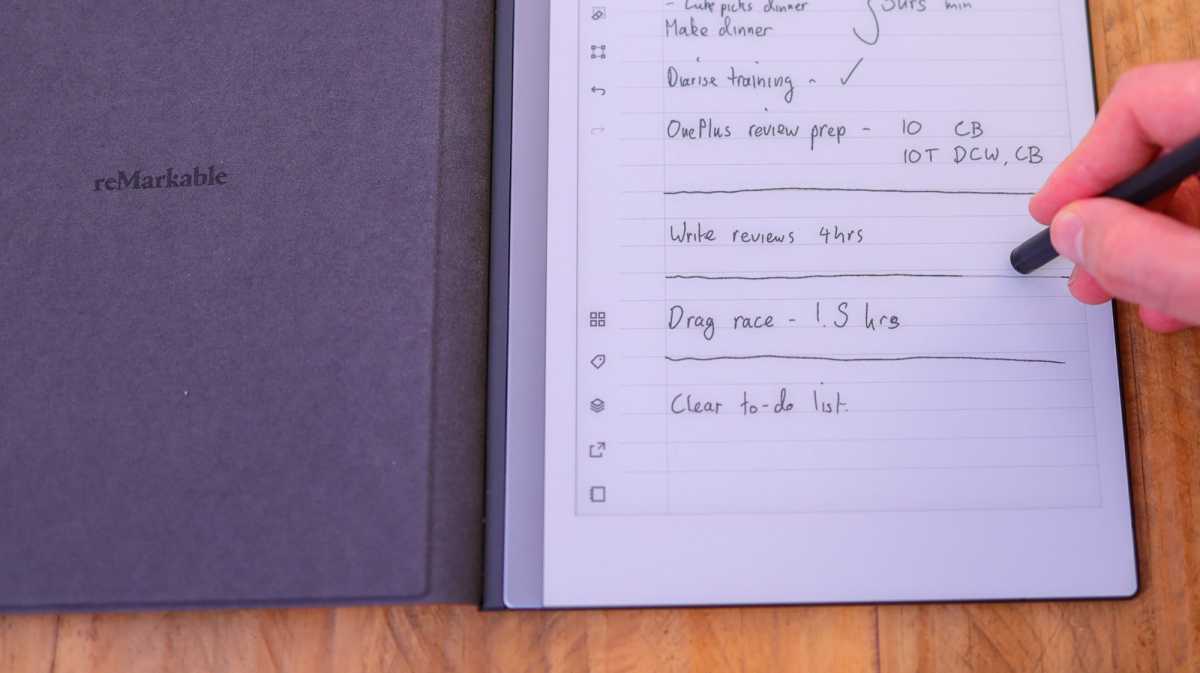 reMarkable
- Luke picks dinner
Make dinner
Diarise training - ✓
OnePlus review prep - 10 CB
10T DCW, CB
Write reviews 4hrs
Drag race - 1.5 hrs
Clear to-do list.